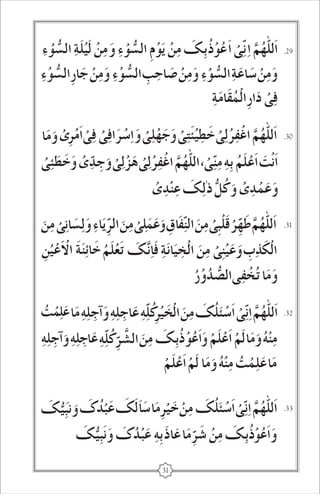 29. اَللّٰهُمَّ اِنِّىْ اَعُوْذُبِكَ مِنْ يَوْمِ السُّوْءِ وَ مِنْ لَيْلَةِ السُّوْءِ
وَمِنْ سَاعَةِ السُّوْءِ وَمِنْ صَاحِبِ السُّوْءِ وَمِنْ جَارِ السُّوْءِ
فِىْ دَارِ الْمُقَامَةِ
30. اَللّٰهُمَّ اغْفِرْلِىْ خَطِيْئَتِىْ وَجَهْلِىْ وَاِسْرَافِىْ فِىْ اَمْرِىْ وَمَا
اَنْتَ اَعْلَمُ بِهِ مِنِّىْ، اَللّٰهُمَّ اغْفِرْلِىْ هَزْلِىْ وَجِدِّىْ وَخَطَئِىْ
وَعَمْدِىْ وَ كُلُّ ذٰلِكَ عِنْدِىْ
31. اَللّٰهُمَّ طَهِّرْ قَلْبِىْ مِنَ النِّفَاقِ وَعَمَلِىْ مِنَ الرِّيَاءِ وَلِسَانِىْ مِنَ
الْكَذِبِ وَعَيْنِىْ مِنَ الْخِيَانَةِ فَاِنَّكَ تَعْلَمُ خَائِنَةَ الْاَعْيُنِ
وَمَا تُخْفِى الصُّدُوْرُ
32. اَللّٰهُمَّ اِنِّىْ اَسْئَلُكَ مِنَ الْخَيْرِ كُلِّهِ عَاجِلِهِ وَآجِلِهِ مَاعَلِمْتُ
مِنْهُ وَمَا لَمْ اَعْلَمْ وَاَعُوْذُبِكَ مِنَ الشَّرِّ كُلِّهِ عَاجِلِهِ وَآجِلِهِ
مَاعَلِمْتُ مِنْهُ وَمَا لَمْ اَعْلَمُ
33. اَللّٰهُمَّ اِنِّىْ اَسْئَلُكَ مِنْ خَيْرِ مَاسَاَلَكَ عَبْدُكَ وَ نَبِيُّكَ
وَاَعُوْذُبِكَ مِنْ شَرِّ مَا عَاذَبِهِ عَبْدُكَ وَنَبِيُّكَ
31